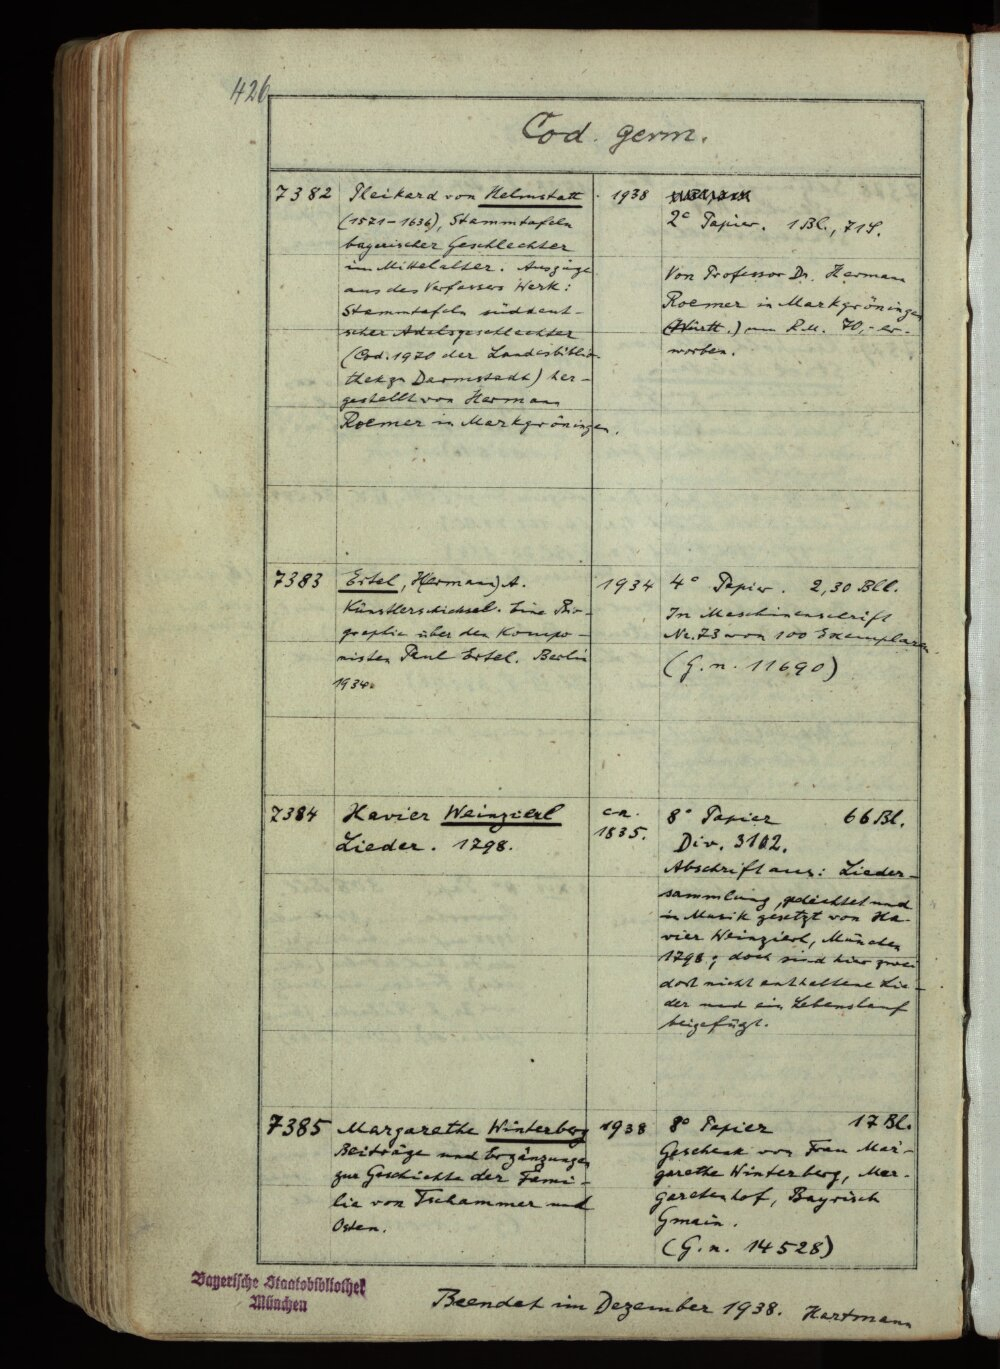 426
Cod. germ.
7382 Pleikard von Helmstatt
(1571-1636), Stammtafeln
bayerischer Geschlechter
im Mittelalter. Auszüge
aus des Verfassers Werk:
Stammtafeln süddeut-
scher Adelsgeschlechter
(Cod. 1970 der Landesbiblio-
thek zu Darmstadt) her-
gestellt von Hermann
Roemer in Markgröningen.
1938
2° Papier. 1 Bl., 71 S.
Von Professor Dr. Hermann
Roemer in Markgröningen
(Württ.) um R.M. 70,- er-
worben.
7383 Ertel, H(ermann) A.
Künstlerschicksal. Eine Bio-
graphie über den Kompo-
nisten Paul Ertel. Berlin
1934.
1934
4° Papier. 2,30 Bll.
In Maschinenschrift
Nr. 73 von 100 Exemplaren
(G.n. 11690)
7384 Xavier Weinzierl
Lieder. 1798.
ca.
1835.
8° Papier 66 Bl.
Div. 3102.
Abschrift aus: Lieder-
sammlung, gedichtet und
in Musik gesetzt von Xa-
vier Weinzierl, München
1798; doch sind hier zwei
dort nicht enthaltene Lie-
der und ein Lebenslauf
beigefügt.
7385 Margarethe Winterberg
Beiträge und Ergänzungen
zur Geschichte der Fami-
lie von Tschammer und
Osten.
1938
8° Papier 17 Bl.
Geschenk von Frau Mar-
garethe Winterberg, Mar-
garetenhof, Bayrisch
Gmain.
(G.n. 14528)
Bayerische Staatsbibliothek
München
Beendet im Dezember 1938. Hartmann